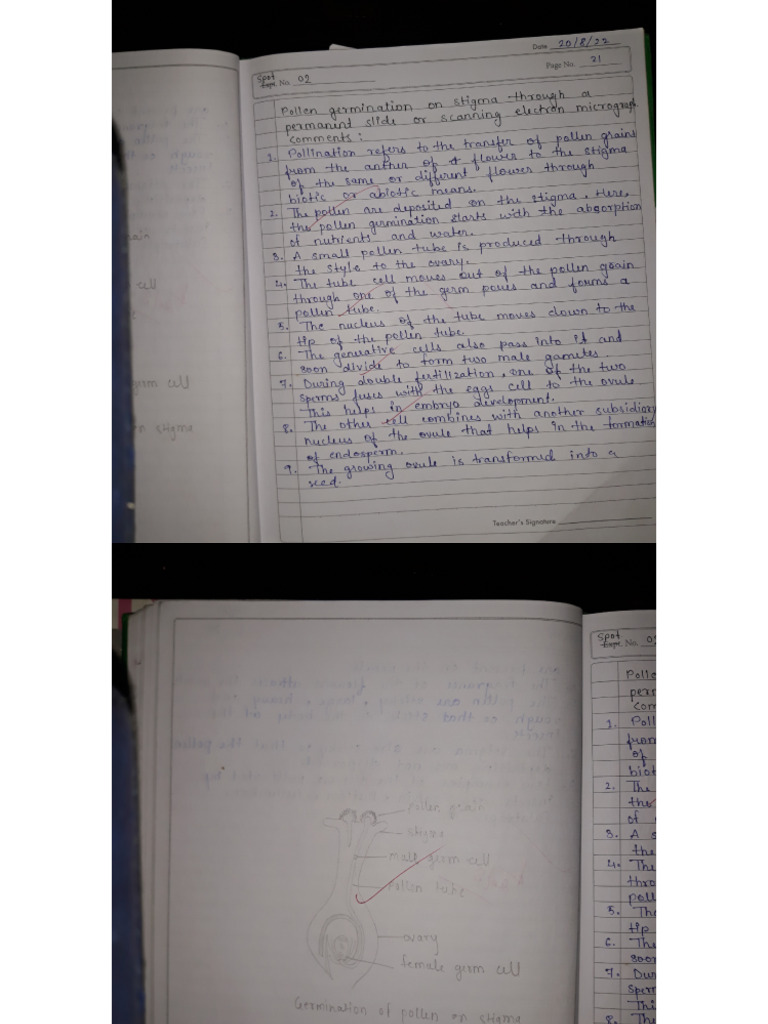 Date 20/8/22
Page No. 21
Spot
Expt. No. 02
Pollen germination on stigma through a
permanent slide or scanning electron micrograph
comments :
1. Pollination refers to the transfer of pollen grains
from the anther of a flower to the stigma
of the same or different flower through
biotic or abiotic means.
2. The pollen are deposited on the stigma. Here,
the pollen germination starts with the absorption
of nutrients and water.
3. A small pollen tube is produced through
the style to the ovary.
4. The tube cell moves out of the pollen grain
through one of the germ pores and forms a
pollen tube.
5. The nucleus of the tube moves down to the
tip of the pollen tube.
6. The generative cells also pass into it and
soon divide to form two male gametes.
7. During double fertilization, one of the two
sperms fuses with the eggs cell to the ovule
This helps in embryo development.
8. The other cell combines with another subsidiary
nucleus of the ovule that helps in the formation
of endosperm.
9. The growing ovule is transformed into a
seed.
Teacher's Signature
ain
cell
germ cell
n stigma
pollen grain
stigma
male germ cell
Pollen tube
ovary
female germ cell
Germination of pollen on stigma
Spot
Expt. No. 0
Polle
perm
com
1. Poll
from
of
biot
2. The
the
of
3. A s
the
4. The
thro
poll
5. The
tip
6. The
soon
7. Dur
sperm
Thi
8. The